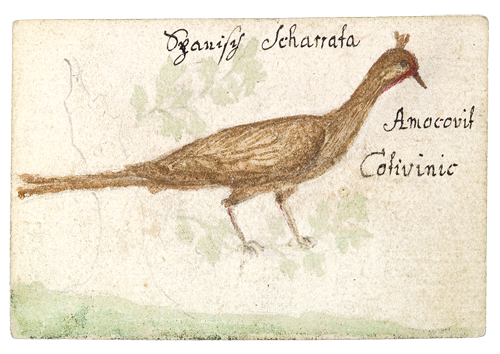 Spanisch Scharrata
Amocovit
Cotivinic